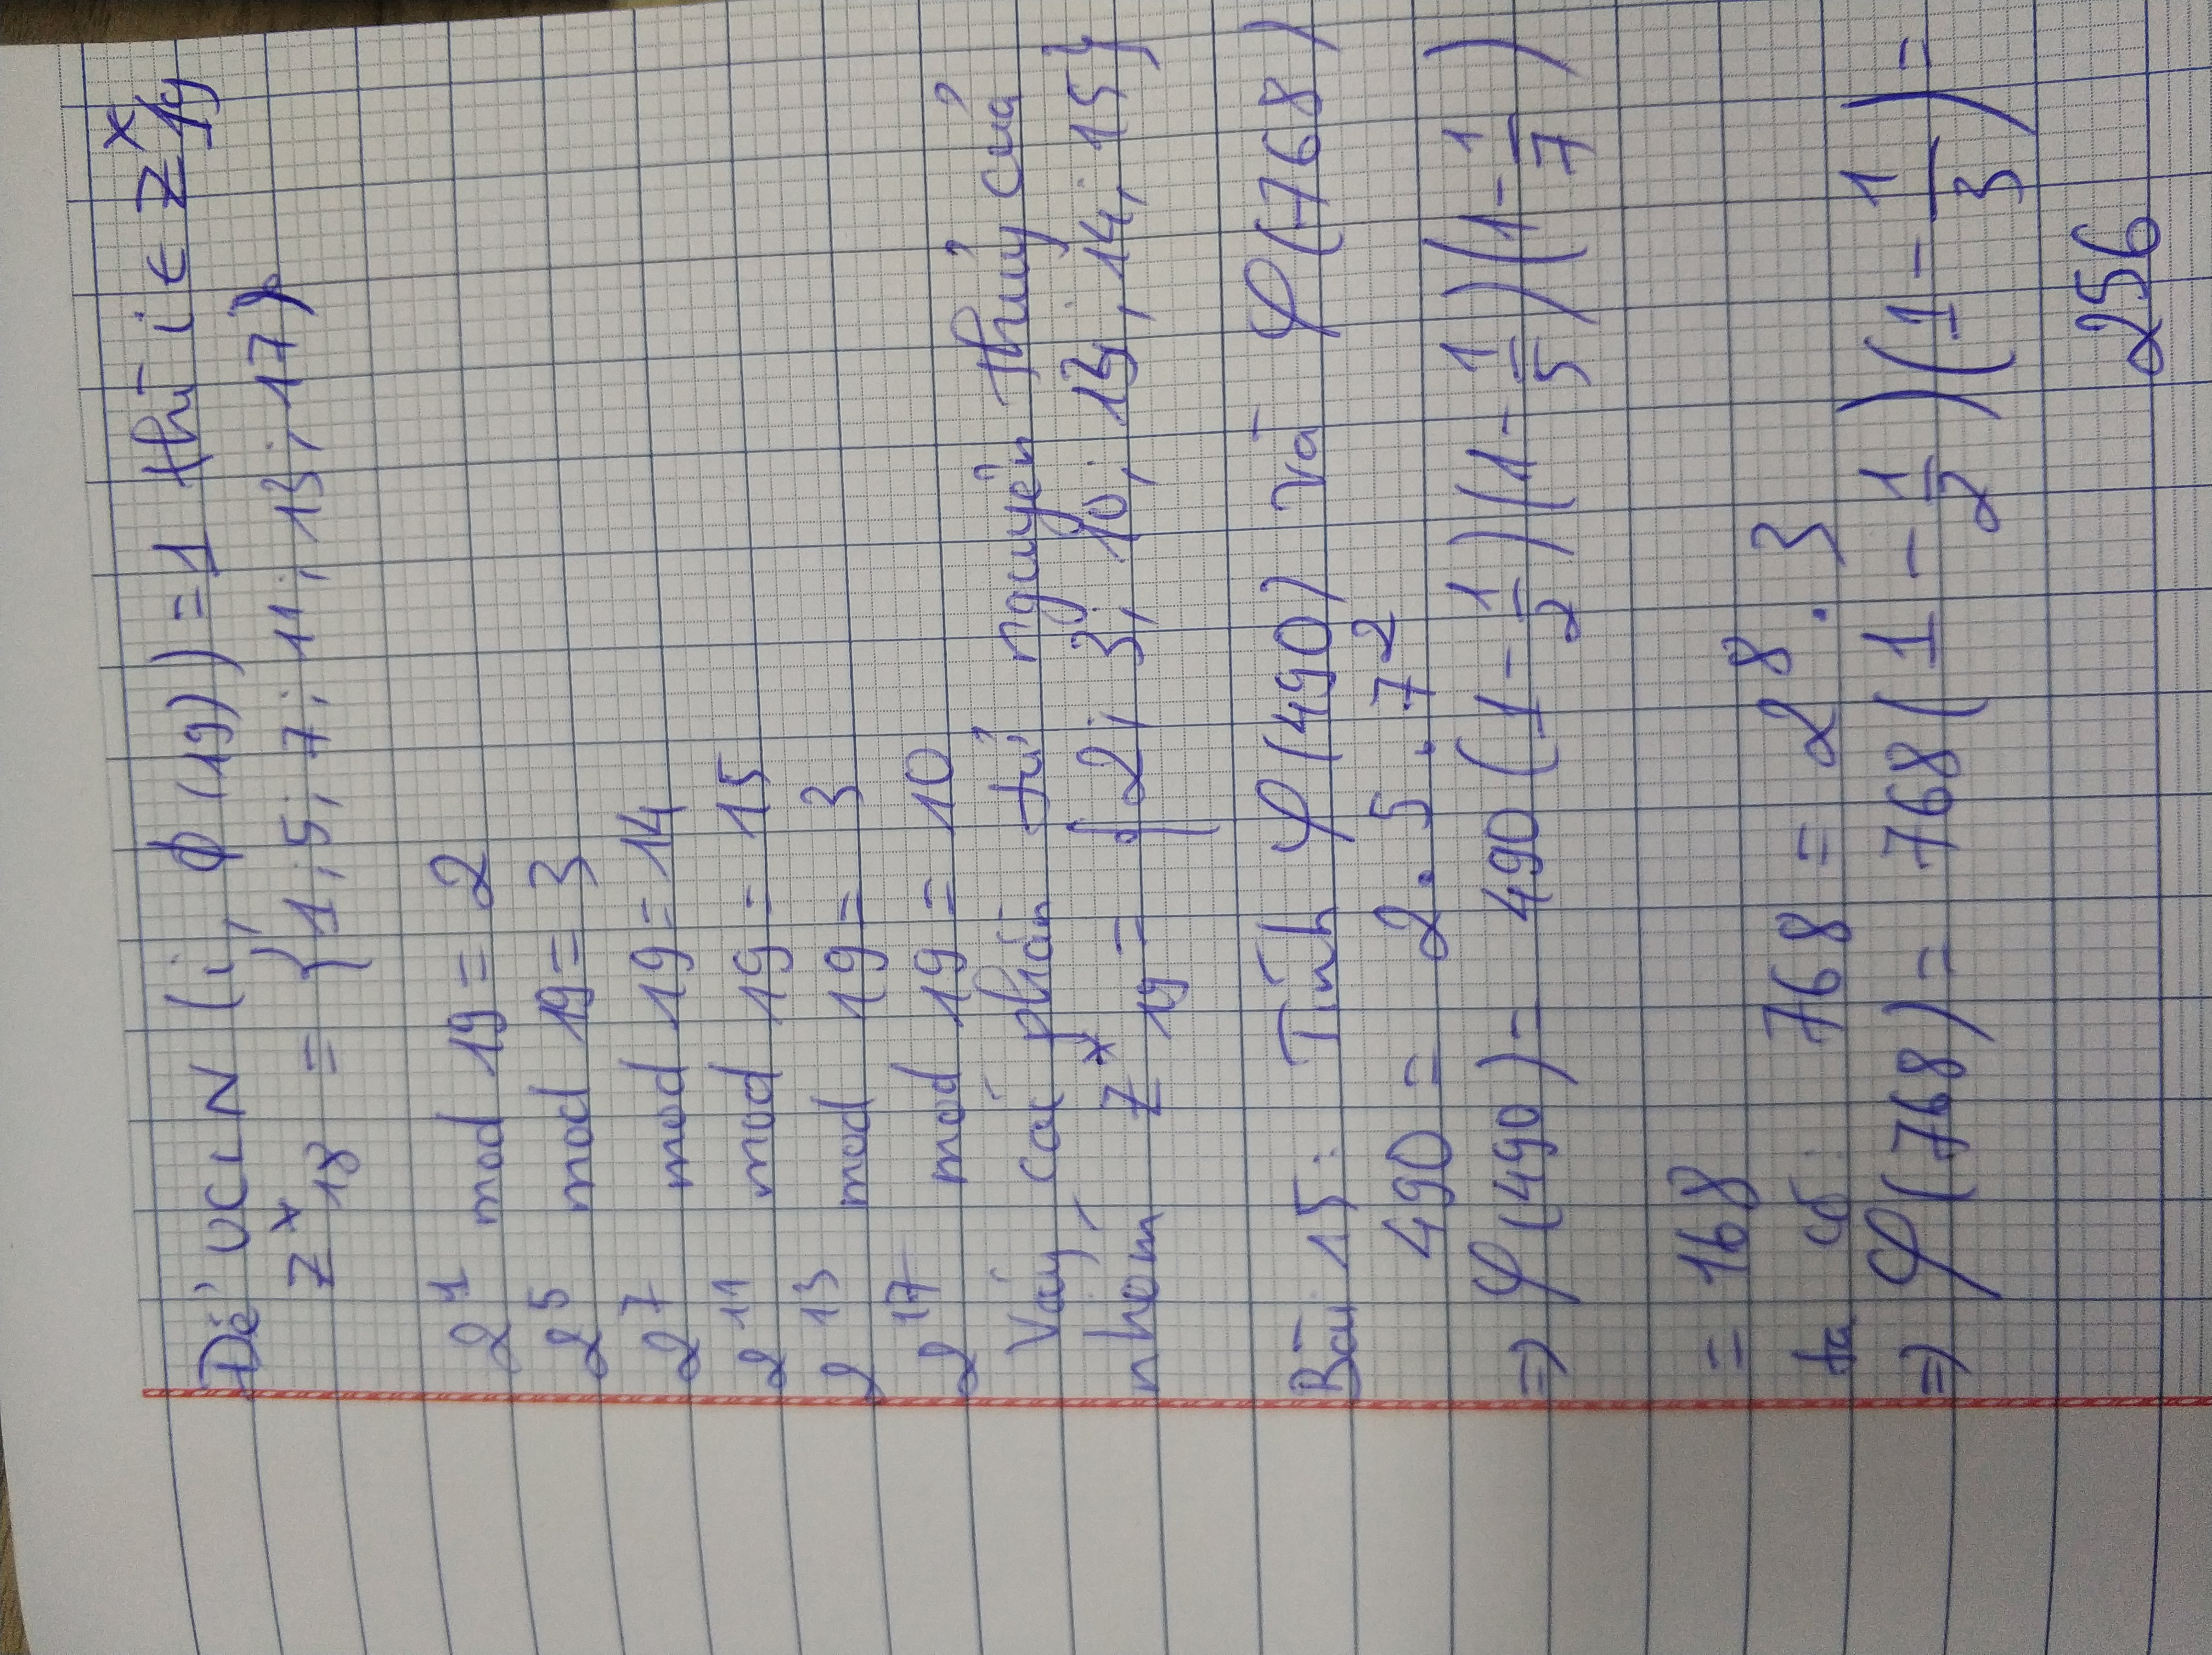 Để UCLN (i, ϕ(19)) = 1 thì i ∈ Z^x_19
Z^*_18 = {1; 5; 7; 11; 13; 17}
2^1 mod 19 = 2
2^5 mod 19 = 3
2^7 mod 19 = 14
2^11 mod 19 = 15
2^13 mod 19 = 3
2^17 mod 19 = 10
Vậy các phần tử nguyên thủy của
nhóm Z^*_19 = {2; 3; 10; 13; 14; 15}
Bài 15: Tính φ(490) và φ(768)
490 = 2 . 5 . 7^2
=> φ(490) = 490 (1 - 1/2)(1 - 1/5)(1 - 1/7)
= 168
ta có: 768 = 2^8 . 3
=> φ(768) = 768 (1 - 1/2)(1 - 1/3) =
256